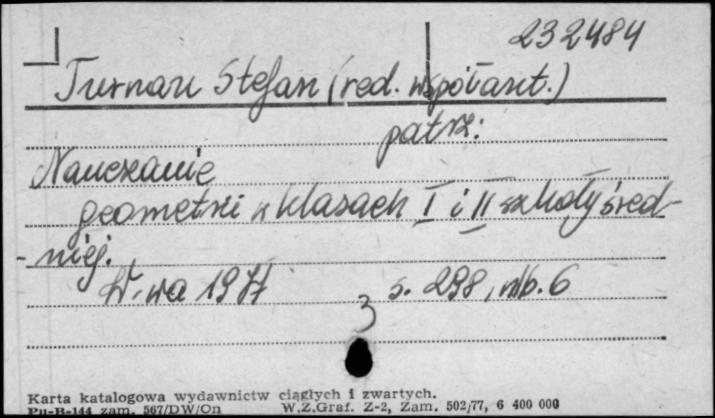 232484
Turnau Stefan (red. współaut.)
patrz:
Nauczanie
geometrii w klasach I i II szkoły śred-
niej.
W-wa 1977 s. 298, nlb. 6
3
Karta katalogowa wydawnictw ciągłych i zwartych.
Pu-B-144 zam. 567/DW/On W.Z.Graf. Z-2, Zam. 502/77, 6 400 000